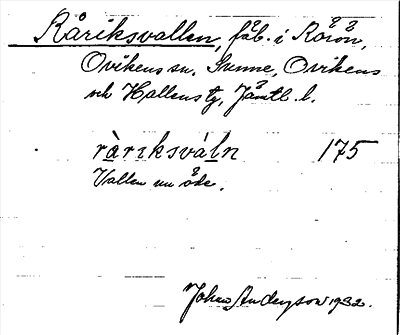 Råriksvallen, fäb. i Rörön,
Ovikens sn. Sunne, Ovikens
och Hallens tg, Jämtl. l.
ràriksváln 175
Vallen nu öde.
Johan Anderson 1932.